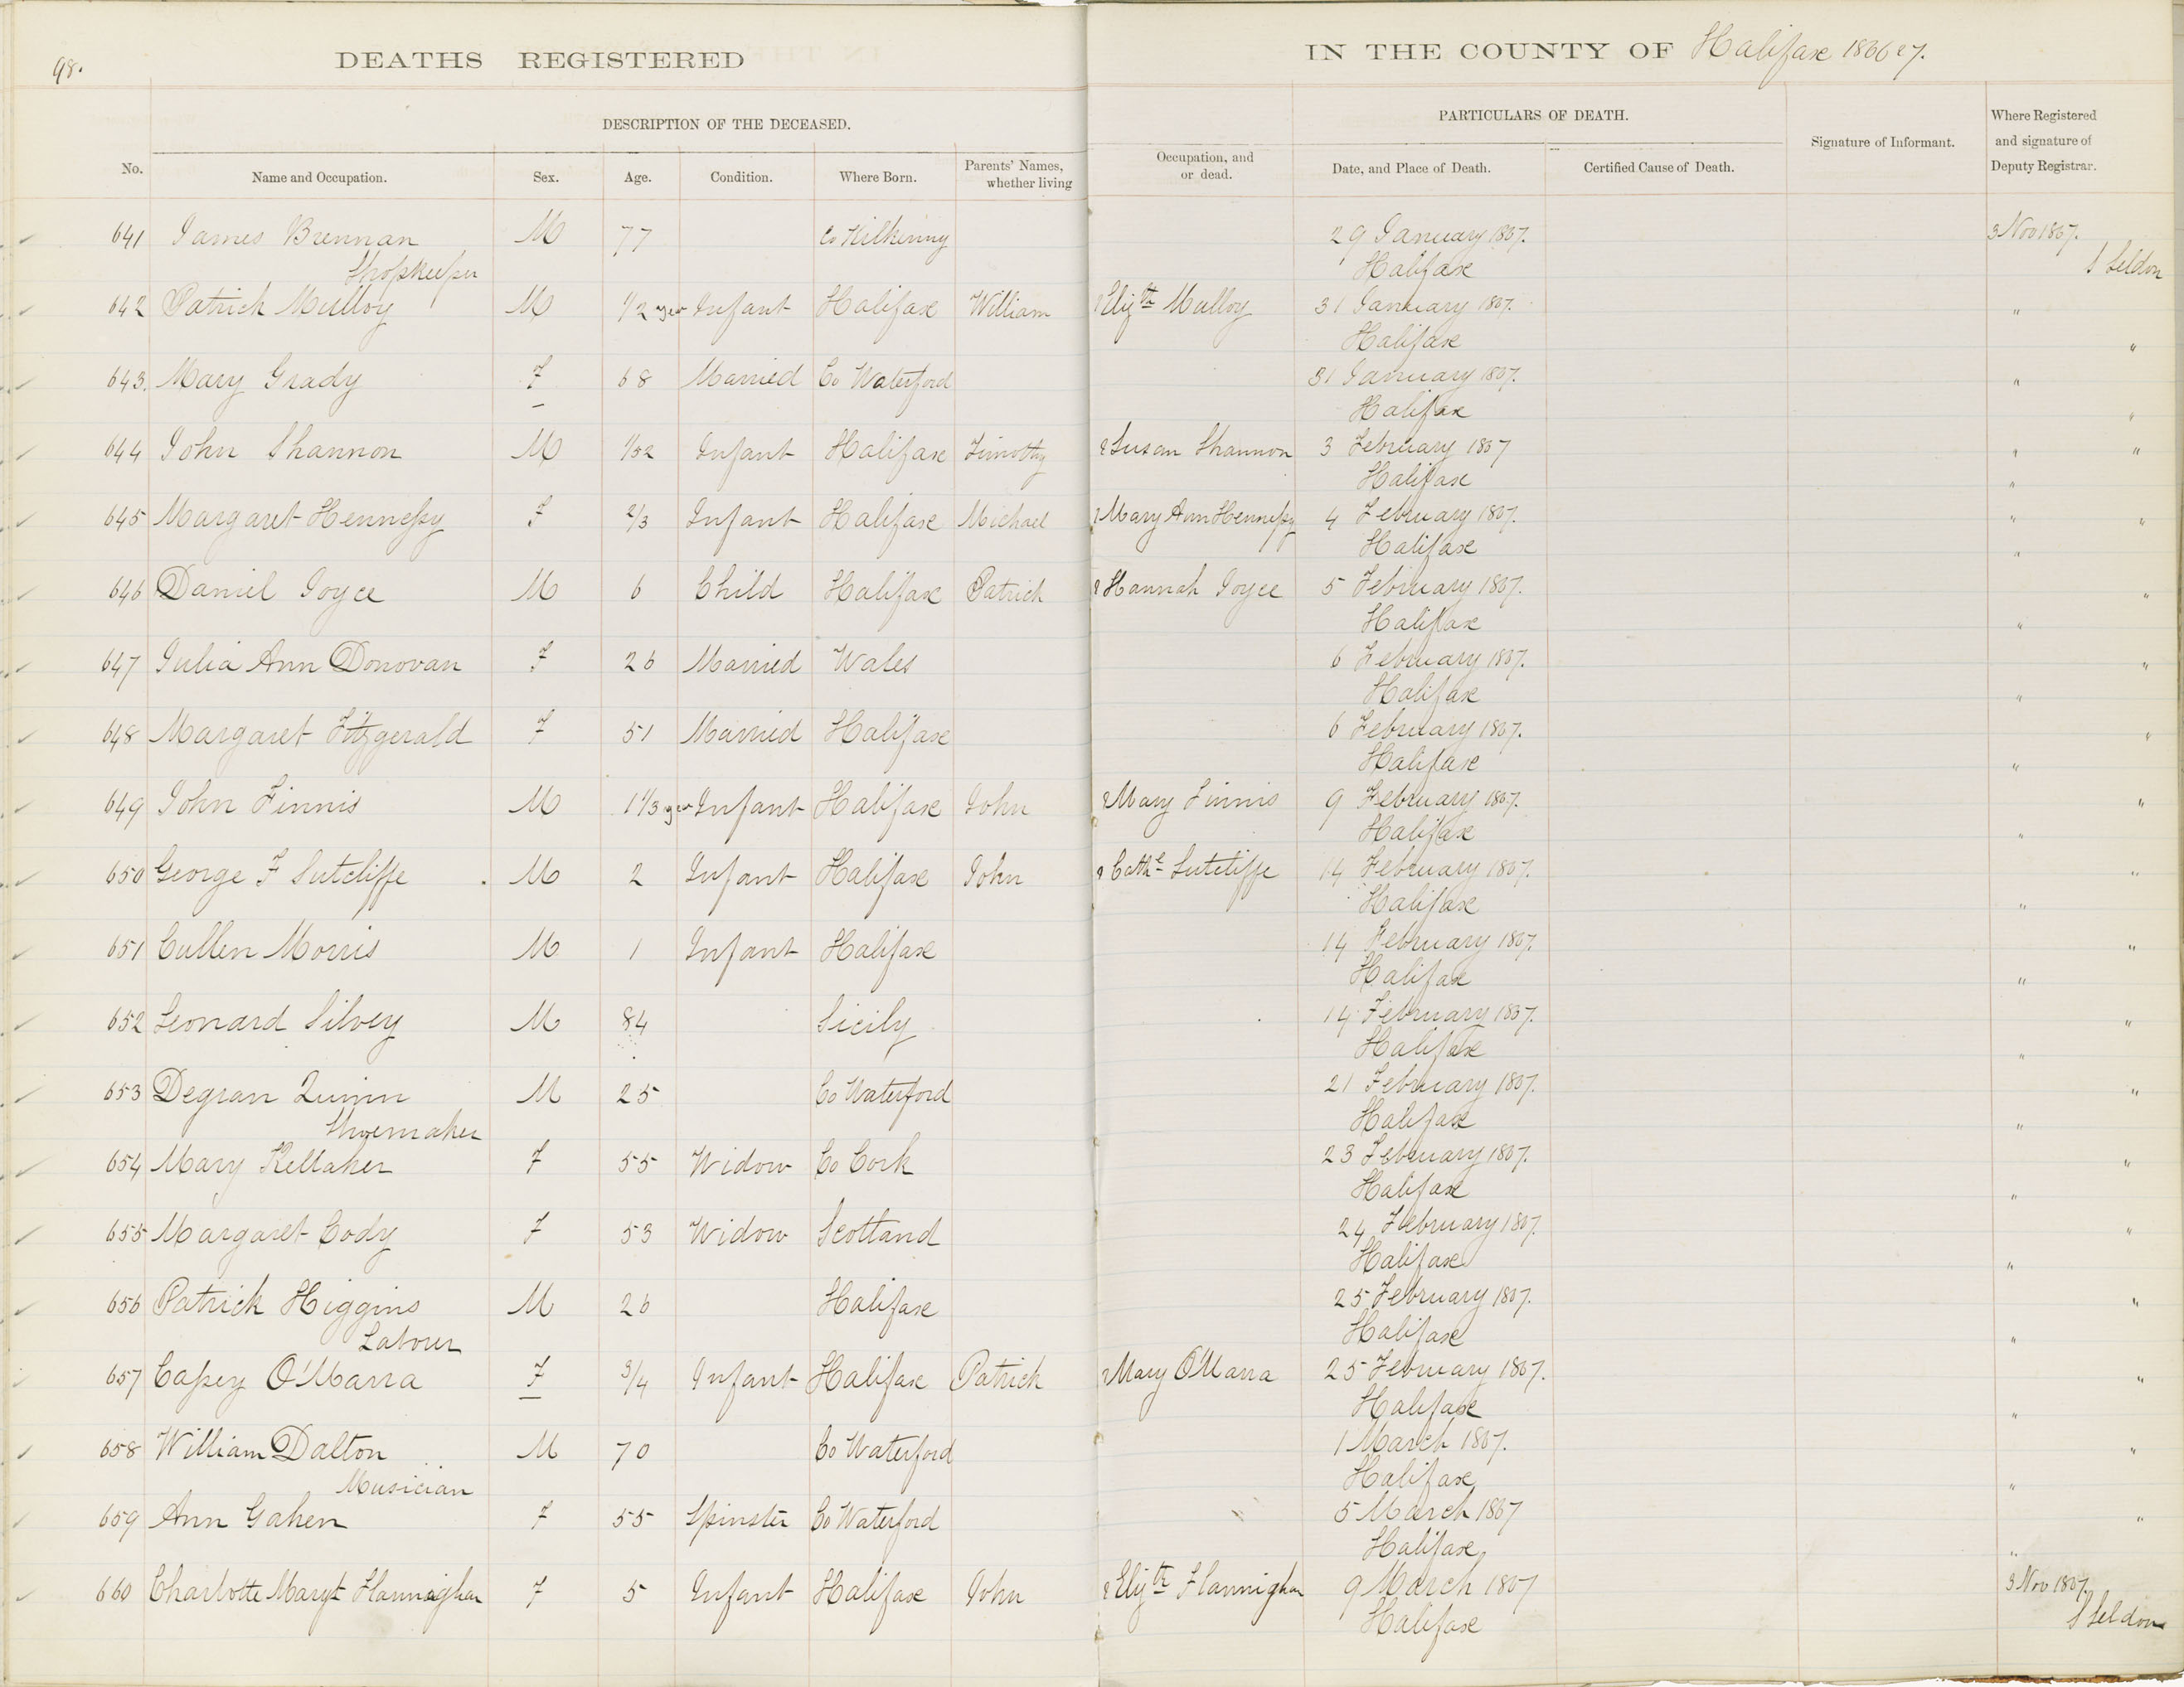 98.
DEATHS REGISTERED IN THE COUNTY OF Halifax 1866 & 7.
DESCRIPTION OF THE DECEASED. PARTICULARS OF DEATH.
No. Name and Occupation. Sex. Age. Condition. Where Born. Parents' Names, whether living Occupation, and or dead. Date, and Place of Death. Certified Cause of Death. Signature of Informant. Where Registered and signature of Deputy Registrar.
641 James Brennan M 77 Co Kilkenny 29 January 1867. 3 Nov 1867.
Shopkeeper Halifax S Seldon
642 Patrick Mulloy M 1/2 year Infant Halifax William & Elizth Mulloy 31 January 1867. "
Halifax "
643. Mary Grady F 68 Married Co Waterford 31 January 1867. "
Halifax "
644 John Shannon M 1/52 Infant Halifax Timothy & Susan Shannon 3 February 1867 " "
Halifax "
645 Margaret Hennessy F 2/3 Infant Halifax Michael & Mary Ann Hennessy 4 February 1867. " "
Halifax "
646 Daniel Joyce M 6 Child Halifax Patrick & Hannah Joyce 5 February 1867. "
Halifax "
647 Julia Ann Donovan F 26 Married Wales 6 February 1867. "
Halifax "
648 Margaret Fitzgerald F 51 Married Halifax 6 February 1867. "
Halifax "
649 John Finnis M 1 1/3 year Infant Halifax John & Mary Finnis 9 February 1867. "
Halifax "
650 George F Sutcliffe M 2 Infant Halifax John & Cathe Sutcliffe 14 February 1867. "
Halifax "
651 Cullen Morris M 1 Infant Halifax 14 February 1867. "
Halifax "
652 Leonard Silvey M 84 Sicily 14 February 1867. "
Halifax "
653 Degran Quinn M 25 Co Waterford 21 February 1867. "
Shoemaker Halifax "
654 Mary Kellaher F 55 Widow Co Cork 23 February 1867. "
Halifax "
655 Margaret Cody F 53 Widow Scotland 24 February 1867. "
Halifax "
656 Patrick Higgins M 26 Halifax 25 February 1867. "
Labour Halifax "
657 Cassey O'Marra F 3/4 Infant Halifax Patrick & Mary O'Marra 25 February 1867. "
Halifax "
658 William Dalton M 70 Co Waterford 1 March 1867. "
Musician Halifax "
659 Ann Gahen F 55 Spinster Co Waterford 5 March 1867 "
Halifax "
660 Charlotte Margt Flannighan F 5 Infant Halifax John & Elizth Flannighan 9 March 1867 3 Nov 1867.
Halifax S Seldon